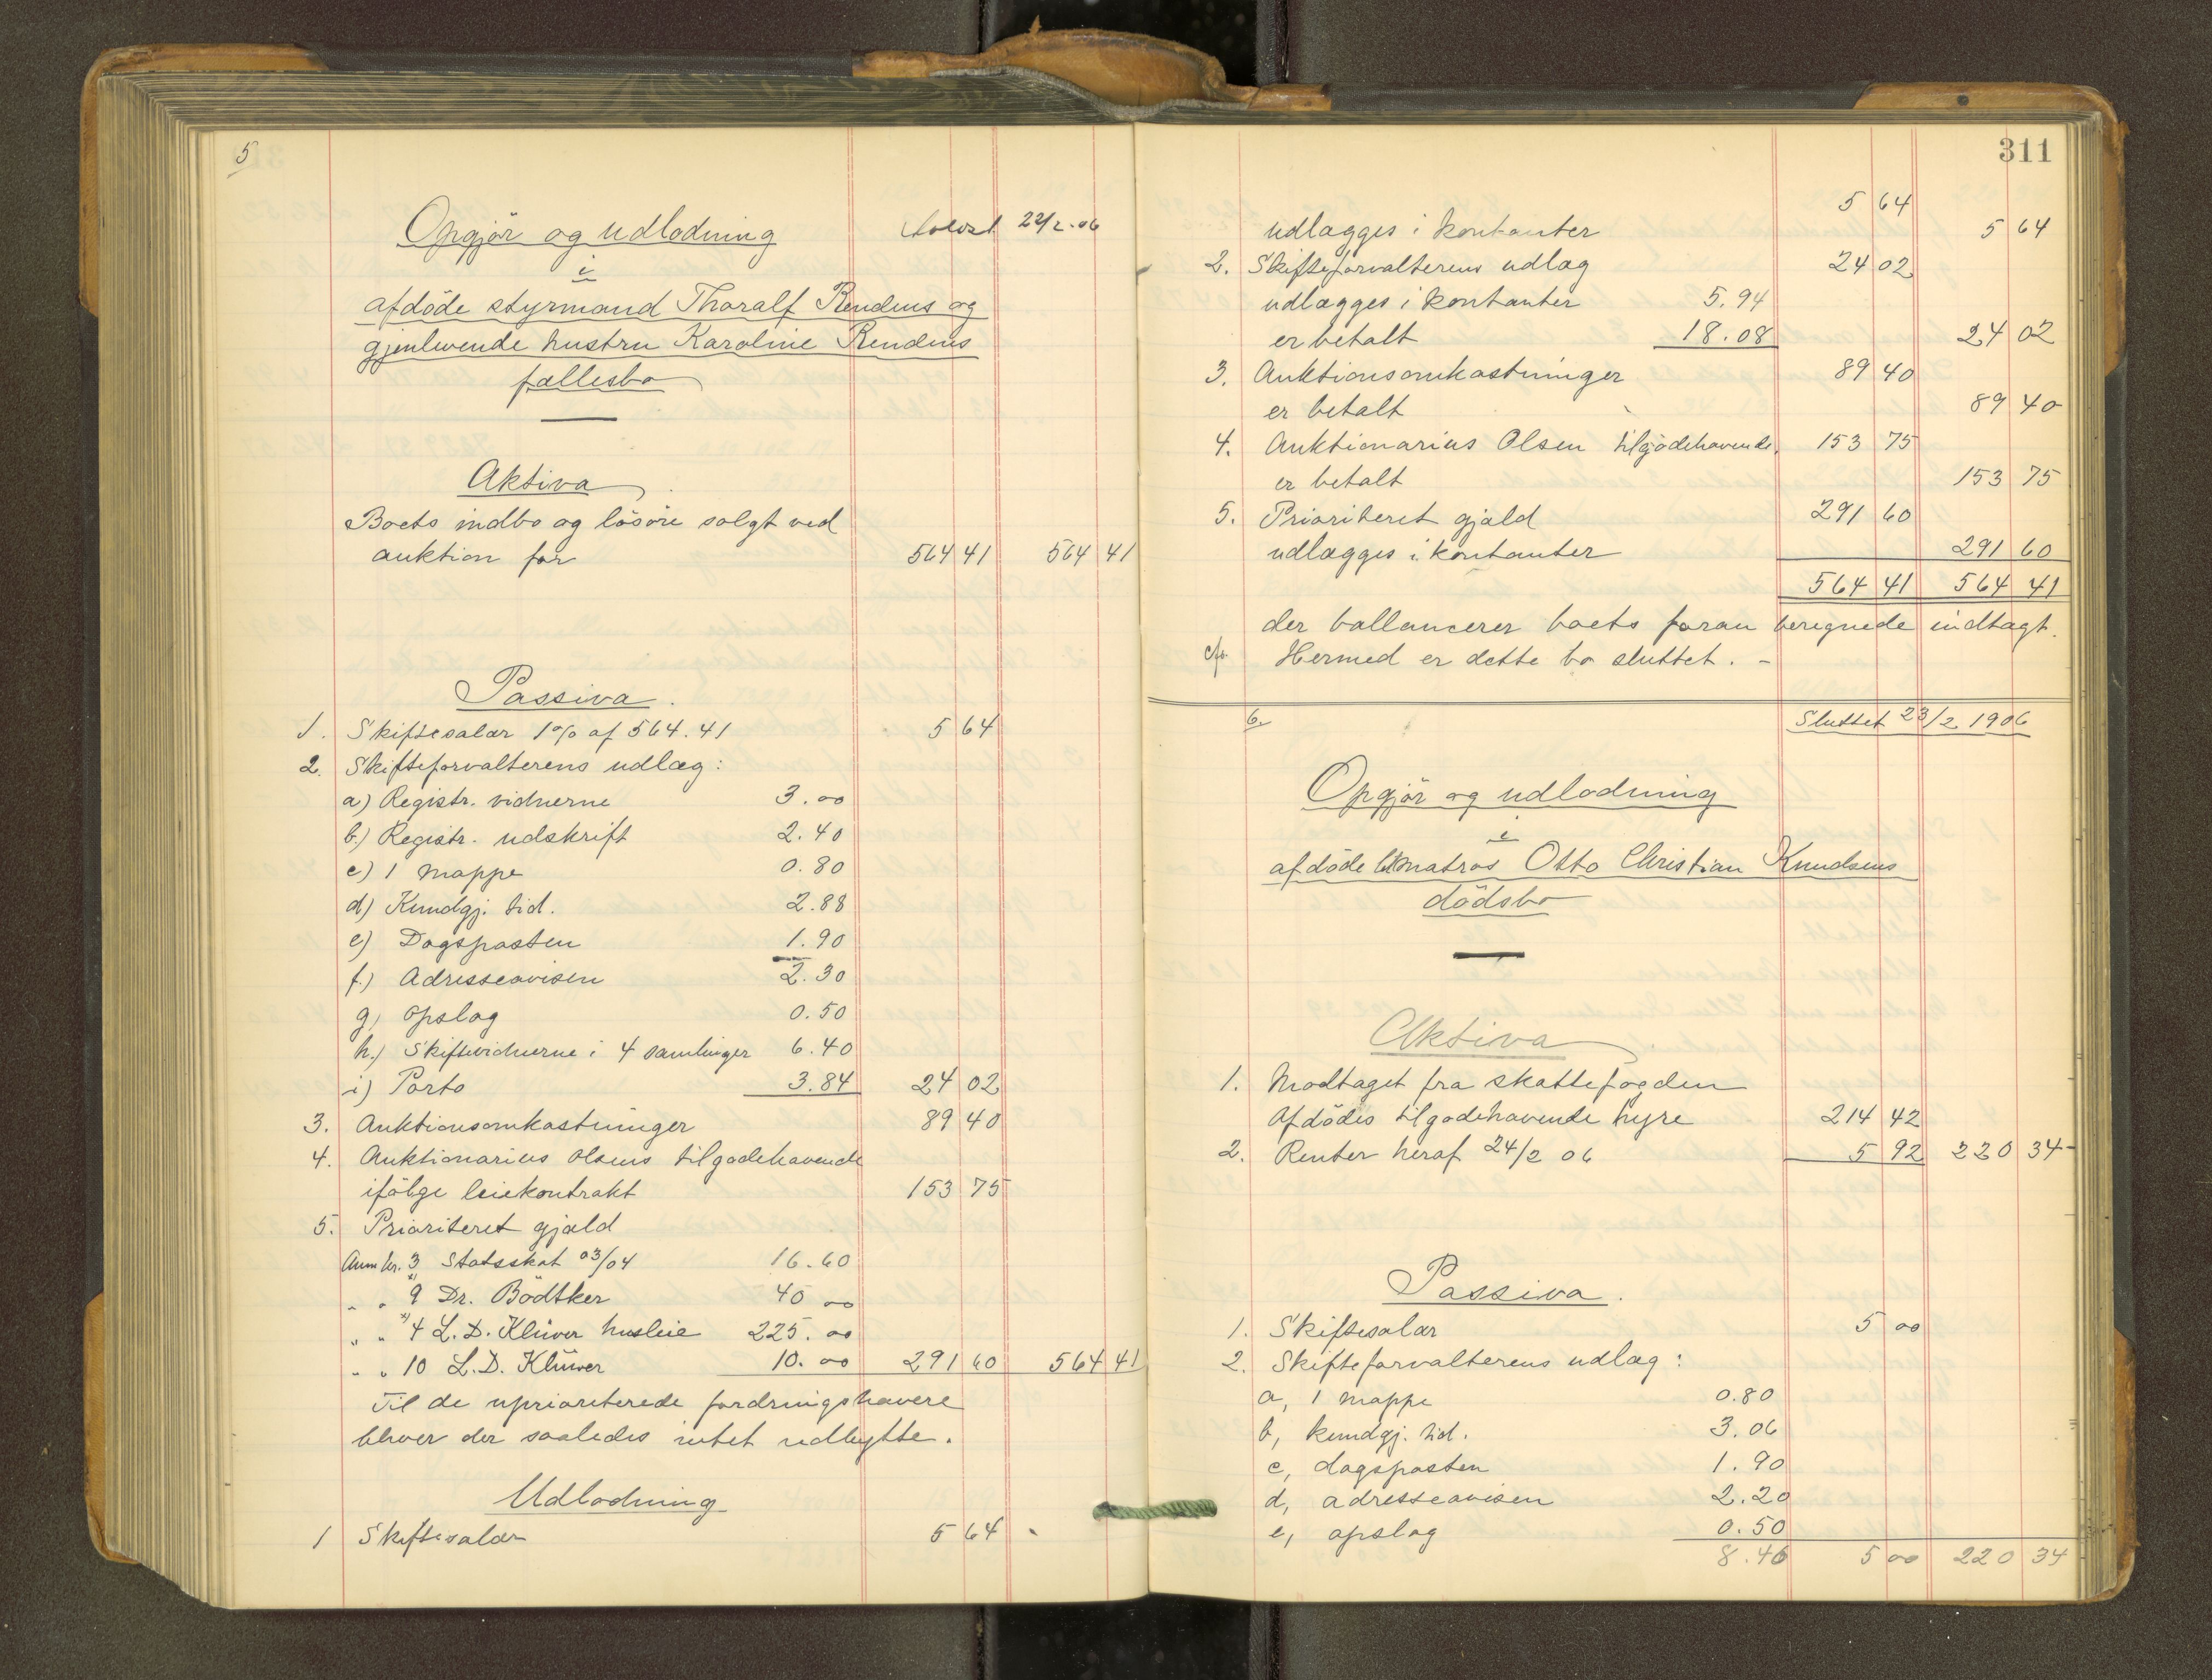 5
Opgjör og udlodning 22/2-06
i
afdöde styrmand Thoralf Rendens og
gjenlevende hustru Karoline Rendens
fællesbo
Aktiva
Boets indbo og lösöre solgt ved
auktion for 564 41 564 41
Passiva.
1. Skiftesalær 1% af 564.41 5 64
2. Skifteforvalterens udlæg:
a) Registr. vidnerne 3.00
b.) Registr. udskrift 2.40
c) 1 mappe 0.80
d) Kundgj. tid. 2.88
e) Dagsposten 1.90
f.) Adresseavisen 2.30
g) opslag 0.50
h.) Skiftevidnerne i 4 samlinger 6.40
i) Porto 3.84 24 02
3. Auktionsomkostninger 89 40
4. Auktionarius Olsens tilgodehavende
ifölge leiekontrakt 153 75
5. Prioriteret gjæld
Anm. nr. 3 Statsskat 03/04 16.60
" " 9 Dr. Bödtker 40 00
" " 4 L. D. Klüver husleie 225.00
" " 10 L. D. Klüver 10.00 291 60 564 41
Til de uprioriterede fordringshavere
bliver der saaledes intet udbytte.
Udlodning
1 Skiftesalær 5 64
311
5 64
udlægges i kontanter 5 64
2. Skifteforvalterens udlæg 24 02
udlægges i kontanter 5.94
er betalt 18.08 24 02
3. Auktionsomkostninger 89 40
er betalt 89 40
4. Auktionarius Olsen tilgodehavende 153 75
er betalt 153 75
5. Prioriteret gjæld 291 60
udlægges i kontanter 291 60
564 41 564 41
der ballancerer boets foran beregnede indtægt.
Hermed er dette bo sluttet. -
6. Sluttet 23/2 1906
Opgjör og udlodning
i
afdöde matros Otto Christian Knudsens
dödsbo
Aktiva
1. Modtaget fra skattefogden
Afdödes tilgodehavende hyre 214 42
2. Renter heraf 24/2 06 5 92 220 34
Passiva.
1. Skiftesalær 5 00
2. Skifteforvalterens udlæg:
a, 1 mappe 0.80
b, kundgj. tid. 3.06
c, dagsposten 1.90
d, adresseavisen 2.20
e, opslag 0.50
8.46 5 00 220 34